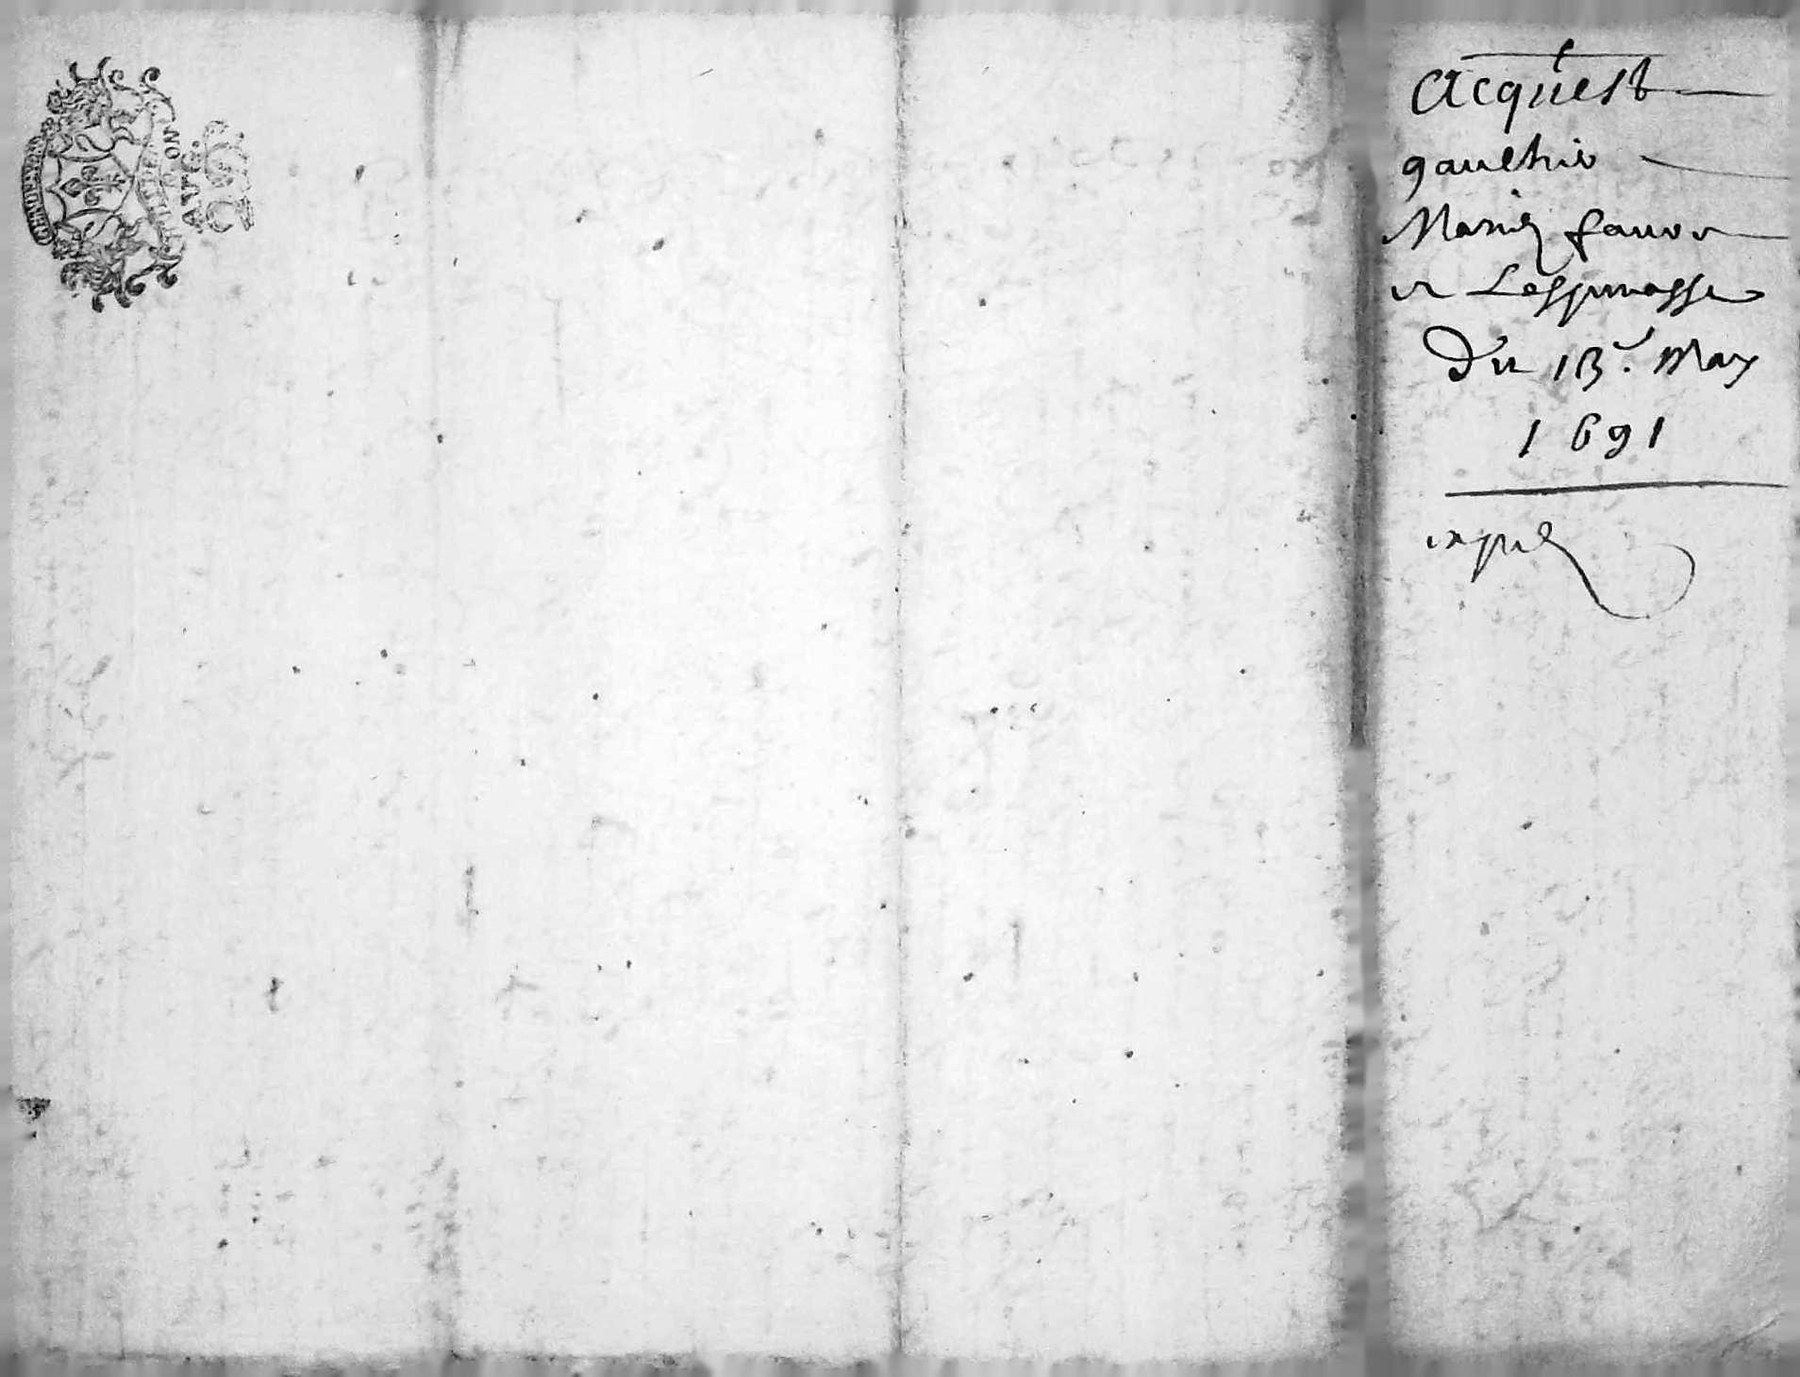 Acquest
gaulthier
Marie favre
et Lespinasse
Du 13.e May
1691
expedié